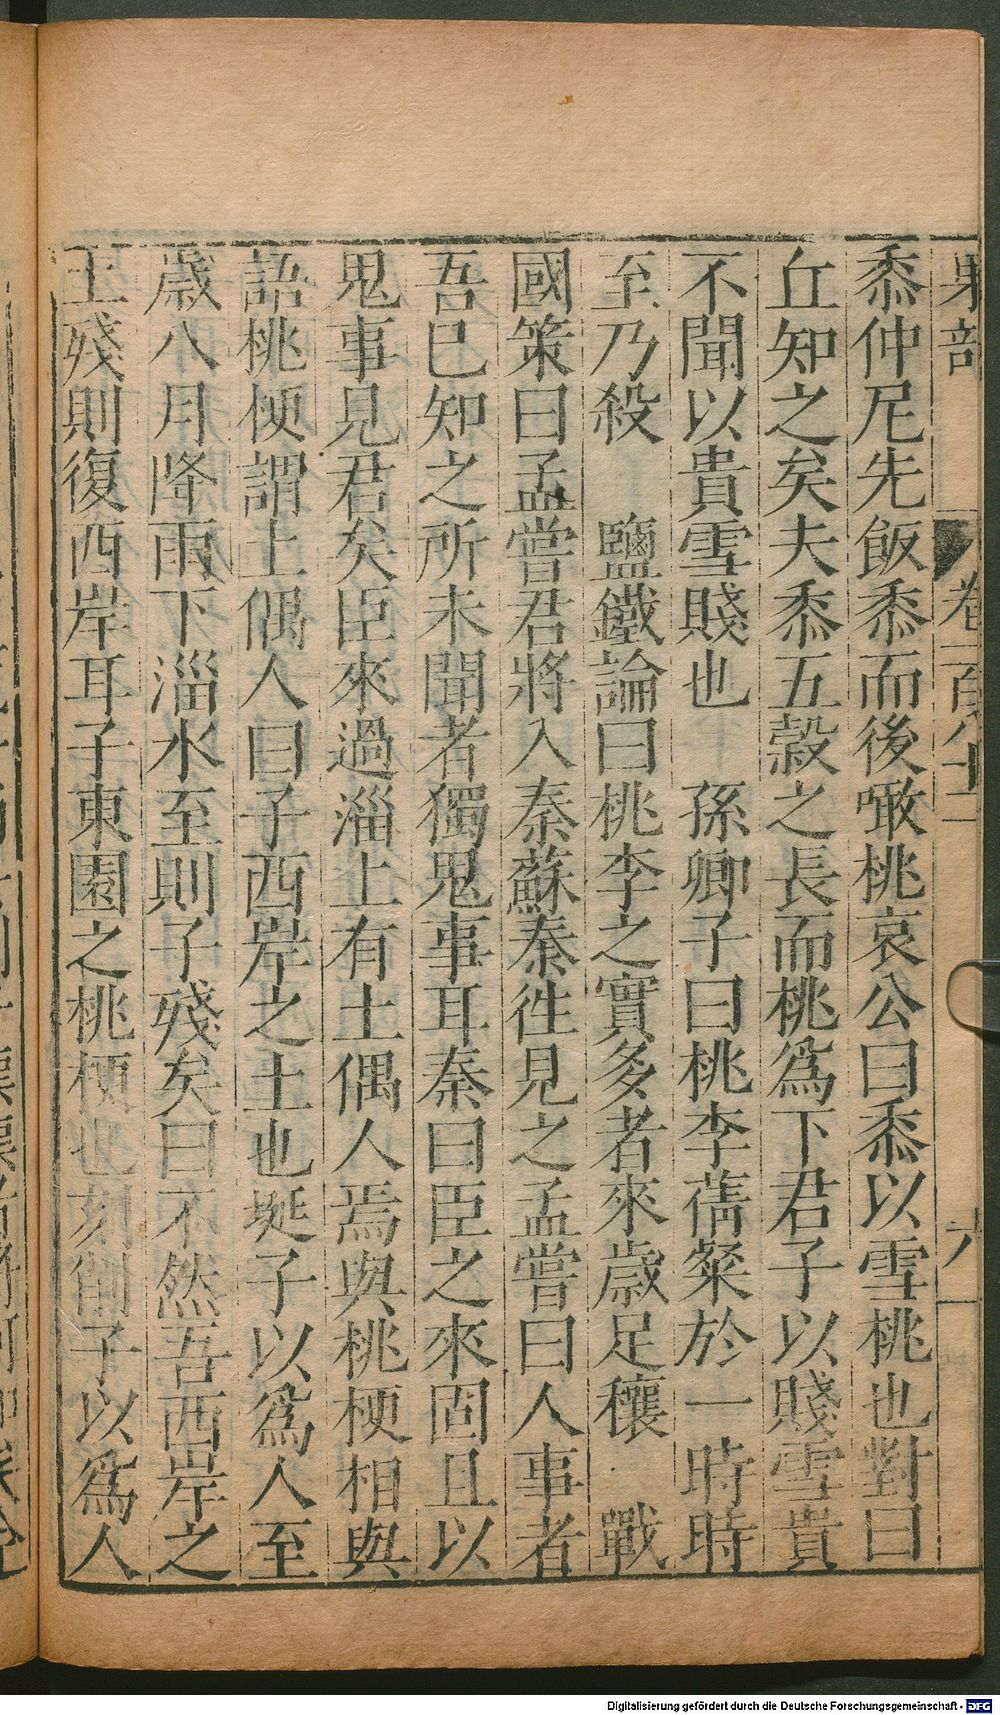 果部 卷一百八十二 六
黍仲尼先飯黍而後噉桃哀公曰黍以雪桃也對曰
丘知之矣夫黍五穀之長而桃爲下君子以賤雪貴
不聞以貴雪賤也 孫卿子曰桃李蒨粲於一時時
至乃殺 鹽鐵論曰桃李之實多者來歲足穰 戰
國策曰孟嘗君將入秦蘇秦徃見之孟嘗曰人事者
吾已知之所未聞者獨鬼事耳秦曰臣之來固且以
鬼事見君矣臣來過淄上有土偶人焉與桃梗相與
語桃梗謂土偶人曰子西岸之土也埏子以爲人至
歲八月降雨下淄水至則子殘矣曰不然吾西岸之
土殘則復西岸耳子東園之桃梗也刻削子以爲人
Digitalisierung gefördert durch die Deutsche Forschungsgemeinschaft - DFG